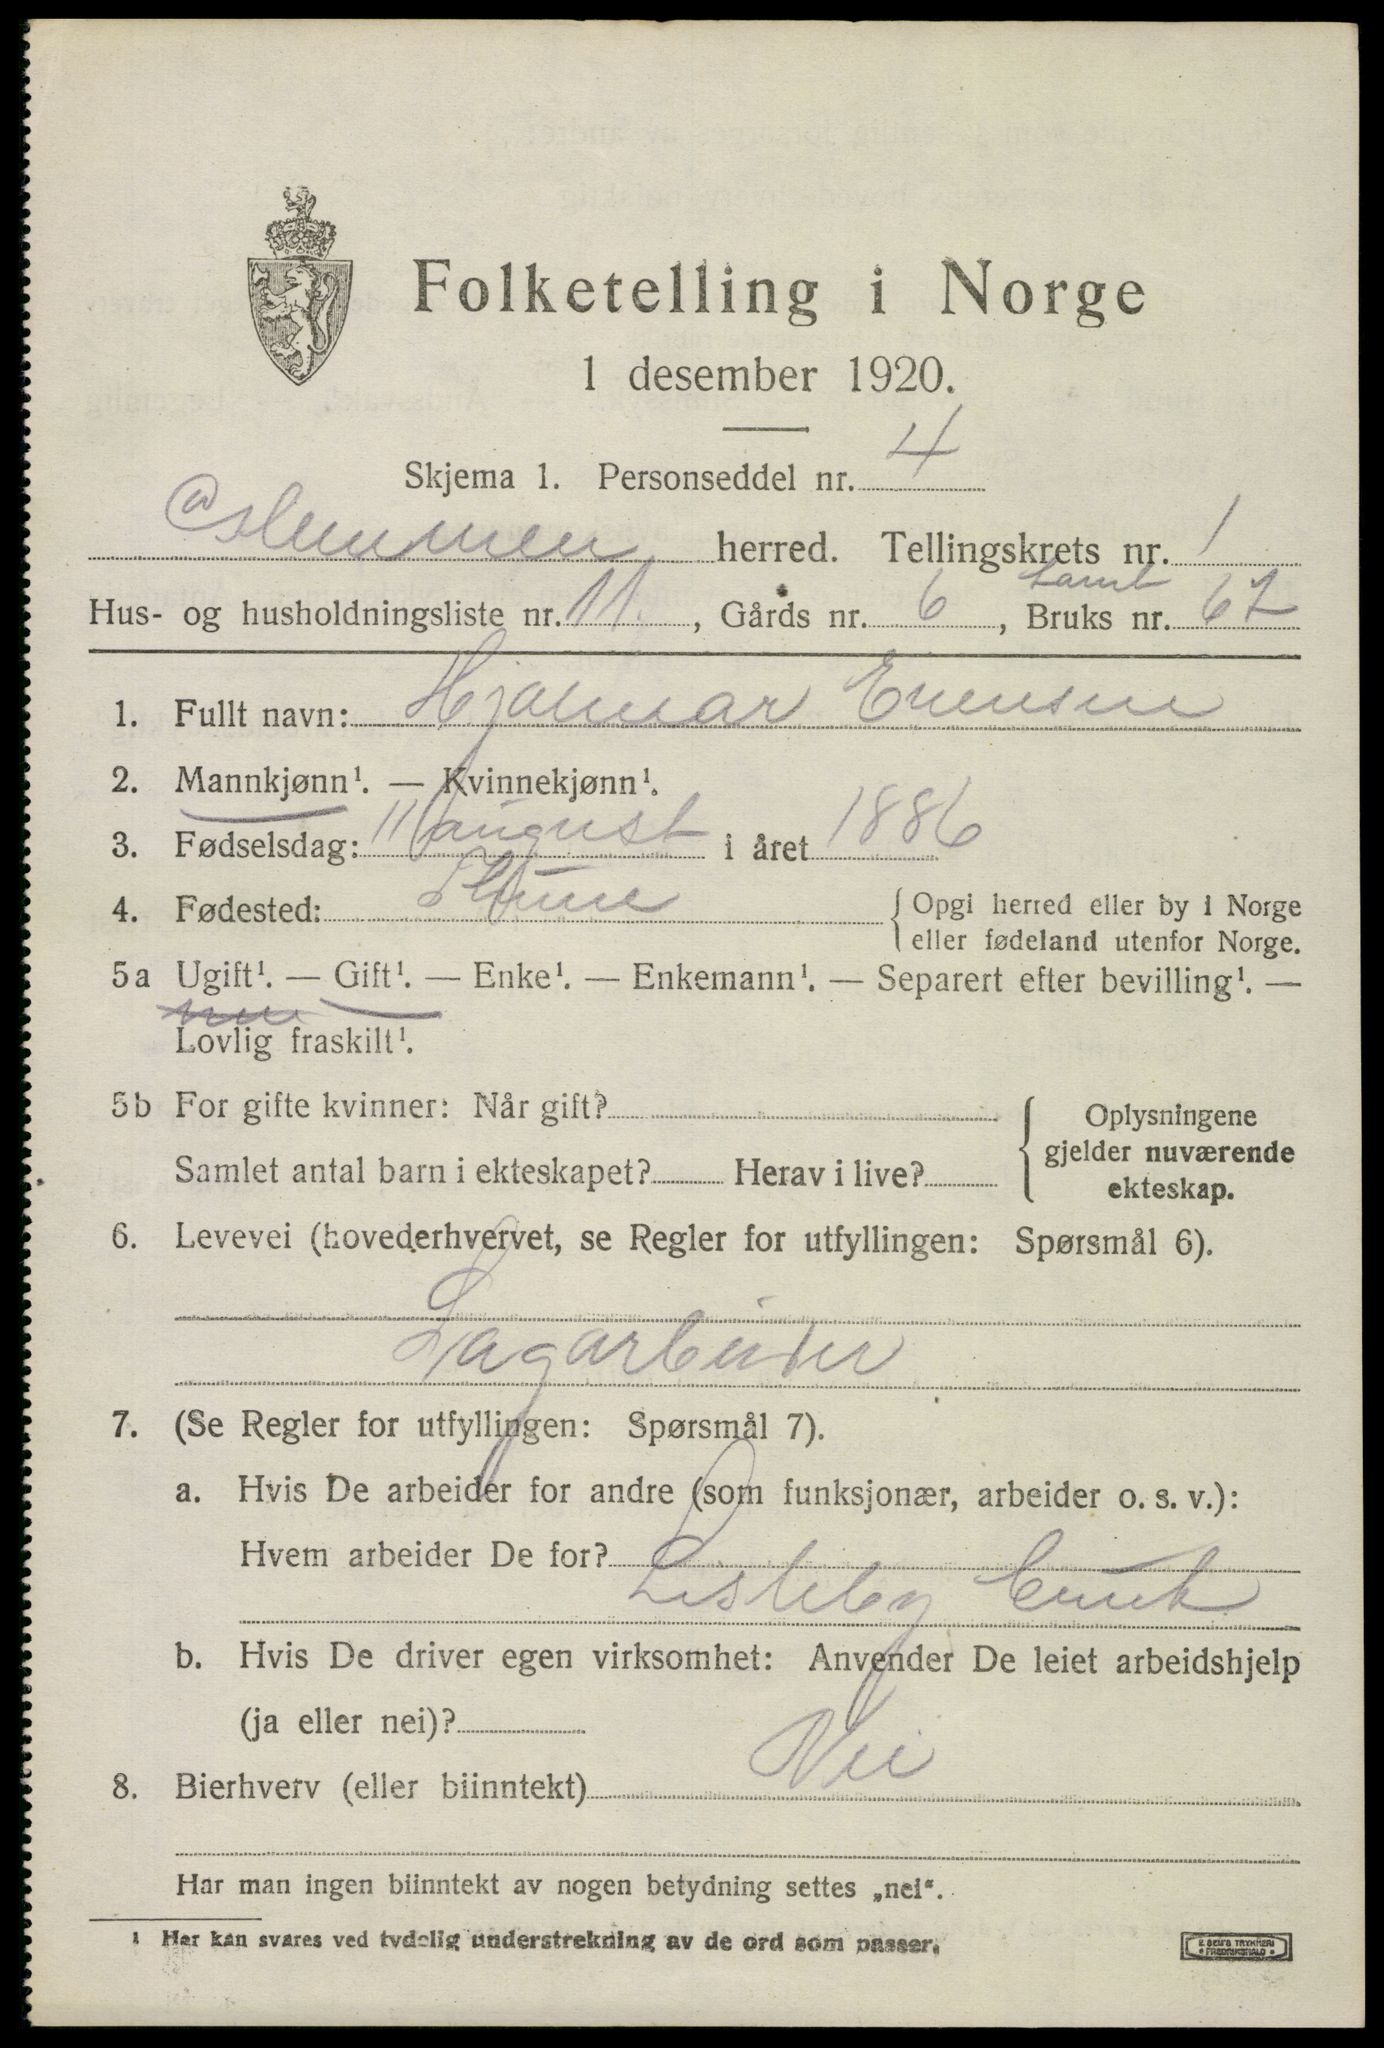 Folketelling i Norge
1 desember 1920.
Skjema 1. Personseddel nr. 4
Glemmen herred. Tellingskrets nr. 1
Hus- og husholdningsliste nr. 11, Gårds nr. 6, Bruks nr. 67
1. Fullt navn: Hjalmar Evensen
2. Mannkjønn¹. — Kvinnekjønn¹.
3. Fødselsdag: 11 august i året 1886
4. Fødested: { Opgi herred eller by i Norge
eller fødeland utenfor Norge.
5a Ugift¹. — Gift¹. — Enke¹. — Enkemann¹. — Separert efter bevilling¹. —
Lovlig fraskilt¹.
5b For gifte kvinner: Når gift? { Oplysningene
gjelder nuværende
Samlet antal barn i ekteskapet? Herav i live?
ekteskap.
6. Levevei (hovederhvervet, se Regler for utfyllingen: Spørsmål 6).
Sagarbeider
7. (Se Regler for utfyllingen: Spørsmål 7).
a. Hvis De arbeider for andre (som funksjonær, arbeider o. s. v.):
Hvem arbeider De for?
Lisleby bruk
b. Hvis De driver egen virksomhet: Anvender De leiet arbeidshjelp
(ja eller nei)?
8. Bierhverv (eller biinntekt) Nei
Har man ingen biinntekt av nogen betydning settes „nei“.
¹ Her kan svares ved tydelig understrekning av de ord som passer.
E. SEM'S TRYKKERI
FREDRIKSHALD